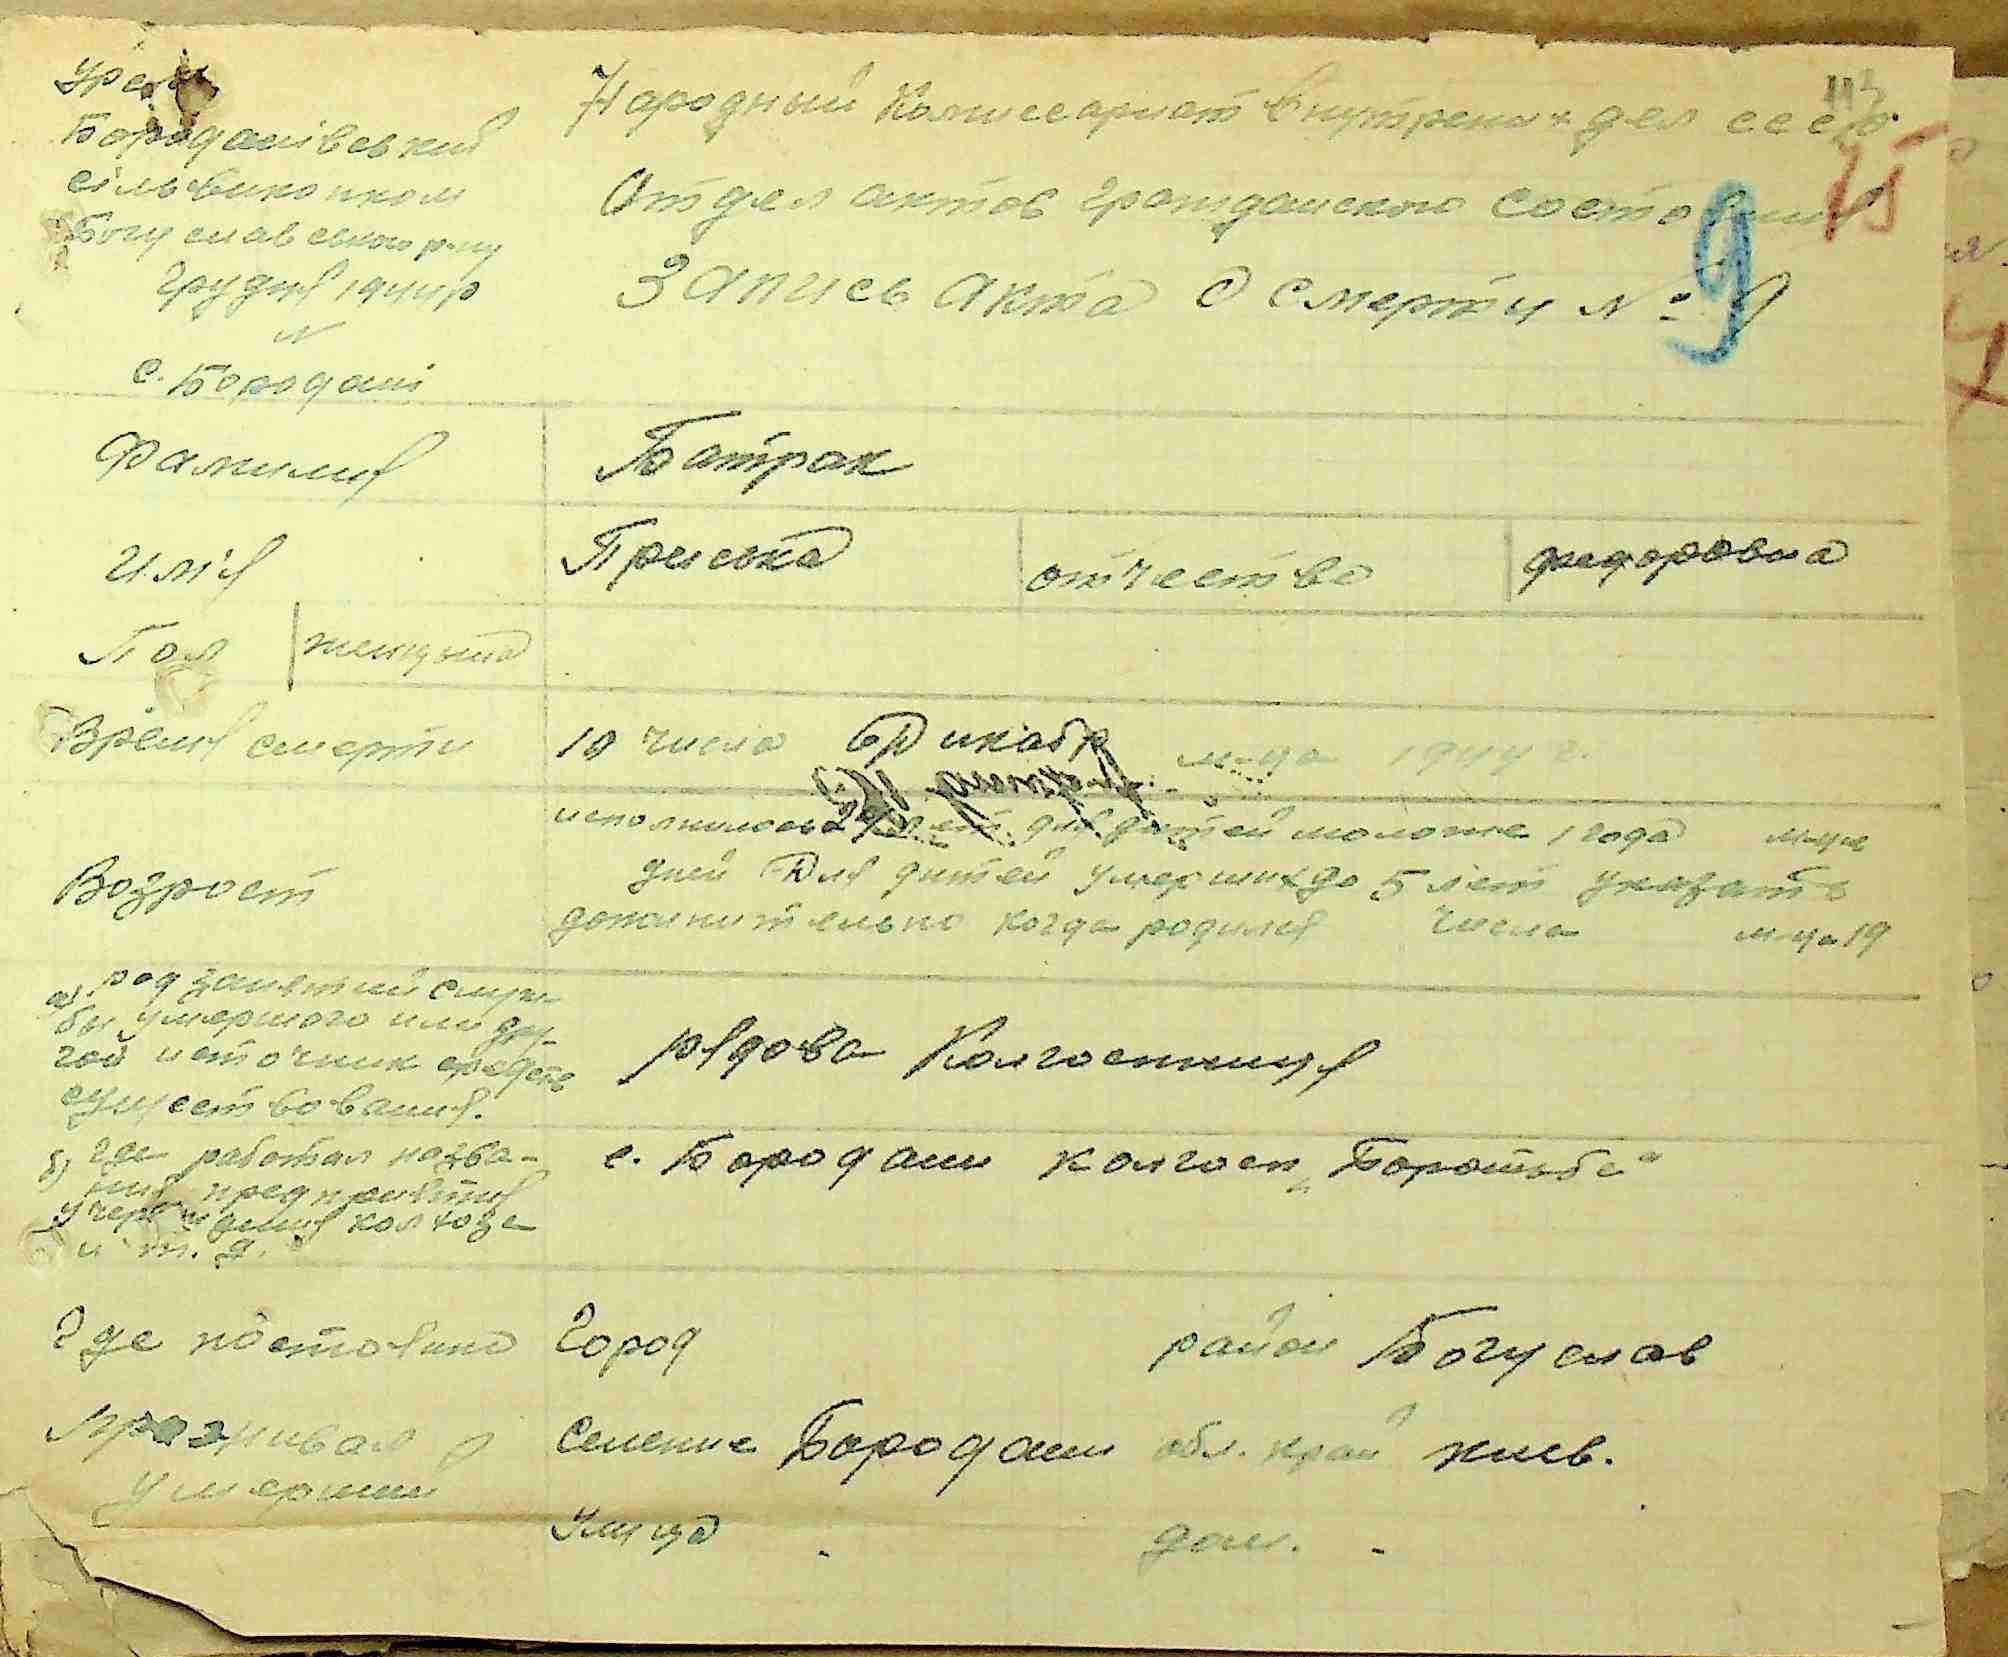 УРСР
Бороданівський
сільвиконком
Богуславського р-ну
Грудня 1944 р
№
с. Бородані
113
15
Народный Комиссариат Внутрених дел СССР
Отдел актов гражданского состояния
Запись акта о смерти № 9
Фамилия Батрак
Им'я Приська отчество федоровна
Пол женщина
Время смерти 10 числа Дикабр м-ца 1944 г.
исполнилось лет для дитей моложе 1 года м-це
Возраст дней Для дитей умерших до 5 лет указать
дополнительно когда родился числа м-ца 19
а) род занятий служ-
бы умершого или дру-
гой источник средств
существования.
рядова Колгоспниця
б) где работал назва-
ния предприятия
учереждения колхоза
и т. д.
с. Бородани колгосп „Боротьба"
Где постояно Город район Богуслав
проживал Селение Бородани обл. край киев.
умерший
Улица - дом. -